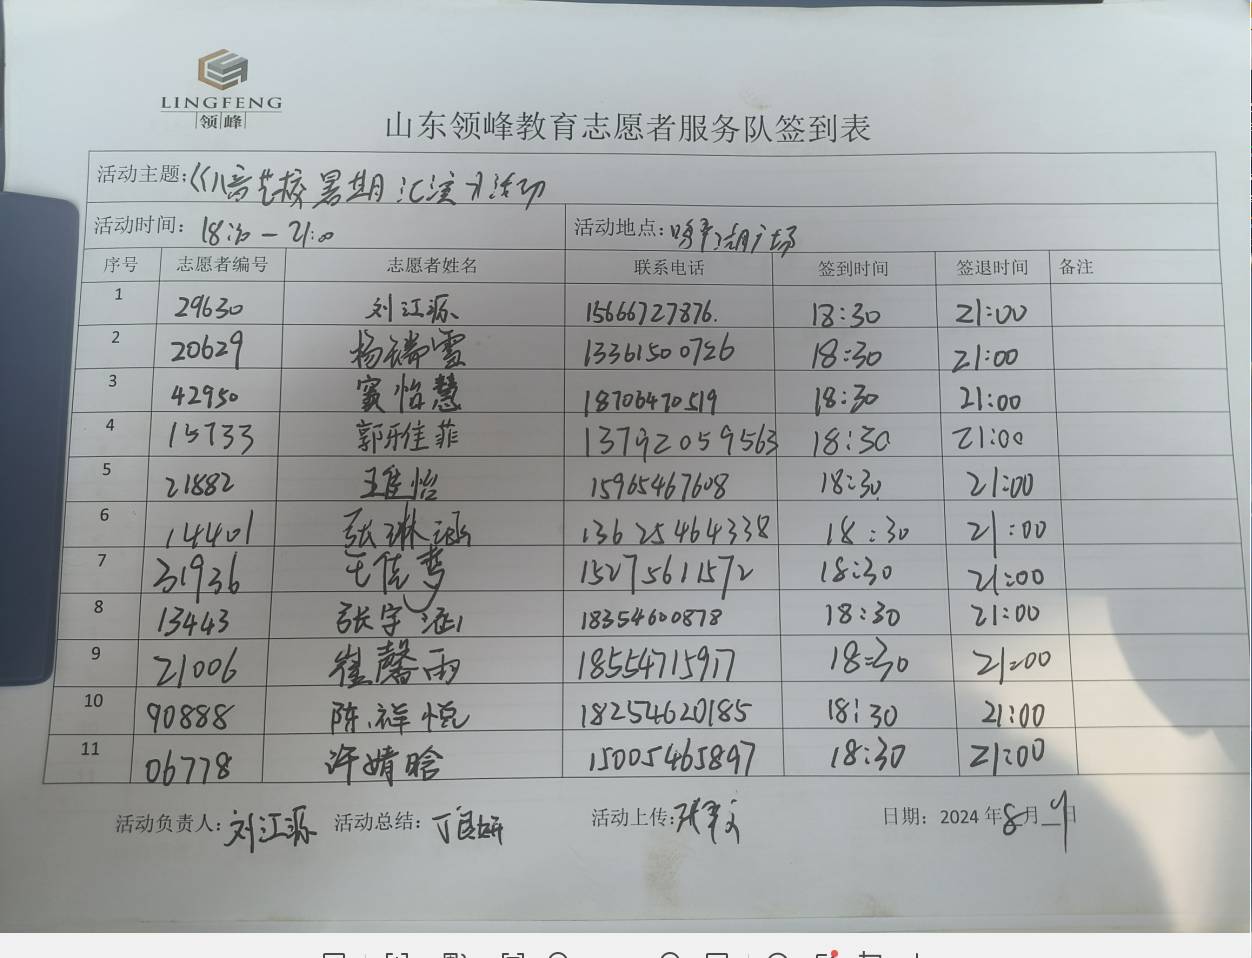 LINGFENG
领峰
山东领峰教育志愿者服务队签到表
活动主题:《八音艺校暑期汇演》活动
活动时间: 18:30 — 21:00 活动地点: 广场
序号 志愿者编号 志愿者姓名 联系电话 签到时间 签退时间 备注
1 29630 刘江源 15666727876. 18:30 21:00
2 20629 杨瑞雪 13361500726 18:30 21:00
3 42950 窦怡慧 18706470519 18:30 21:00
4 15733 郭雅菲 13792059563 18:30 21:00
5 21882 王佳怡 15965467608 18:30 21:00
6 14401 张琳涵 13625464338 18:30 21:00
7 31936 王佳梦 15275611572 18:30 21:00
8 13443 张宇涵 18354600878 18:30 21:00
9 21006 崔馨雨 18554715917 18:30 21:00
10 90888 陈祥悦 18254620185 18:30 21:00
11 06778 许婧晗 15005465897 18:30 21:00
活动负责人: 刘江源 活动总结: 丁良妍 活动上传: 张 日期: 2024年8月9日